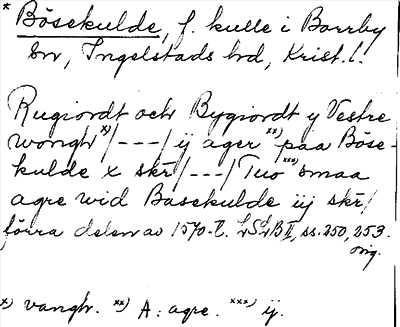 * Bösekulde, f. kulle i Borrby
sn, Ingelstads hrd, Krist. l.
Rugiordt och Bygiordt y Vestre
wongh x) /---/ ij ager xx) paa Böse-
kulde x skr /---/ Tuo xxx) smaa
agre wid Basekulde iij skr /
förra delen av 1570-t. LSLB II, ss. 250, 253.
orig.
x) vangh. xx) A: agre. xxx) ij.